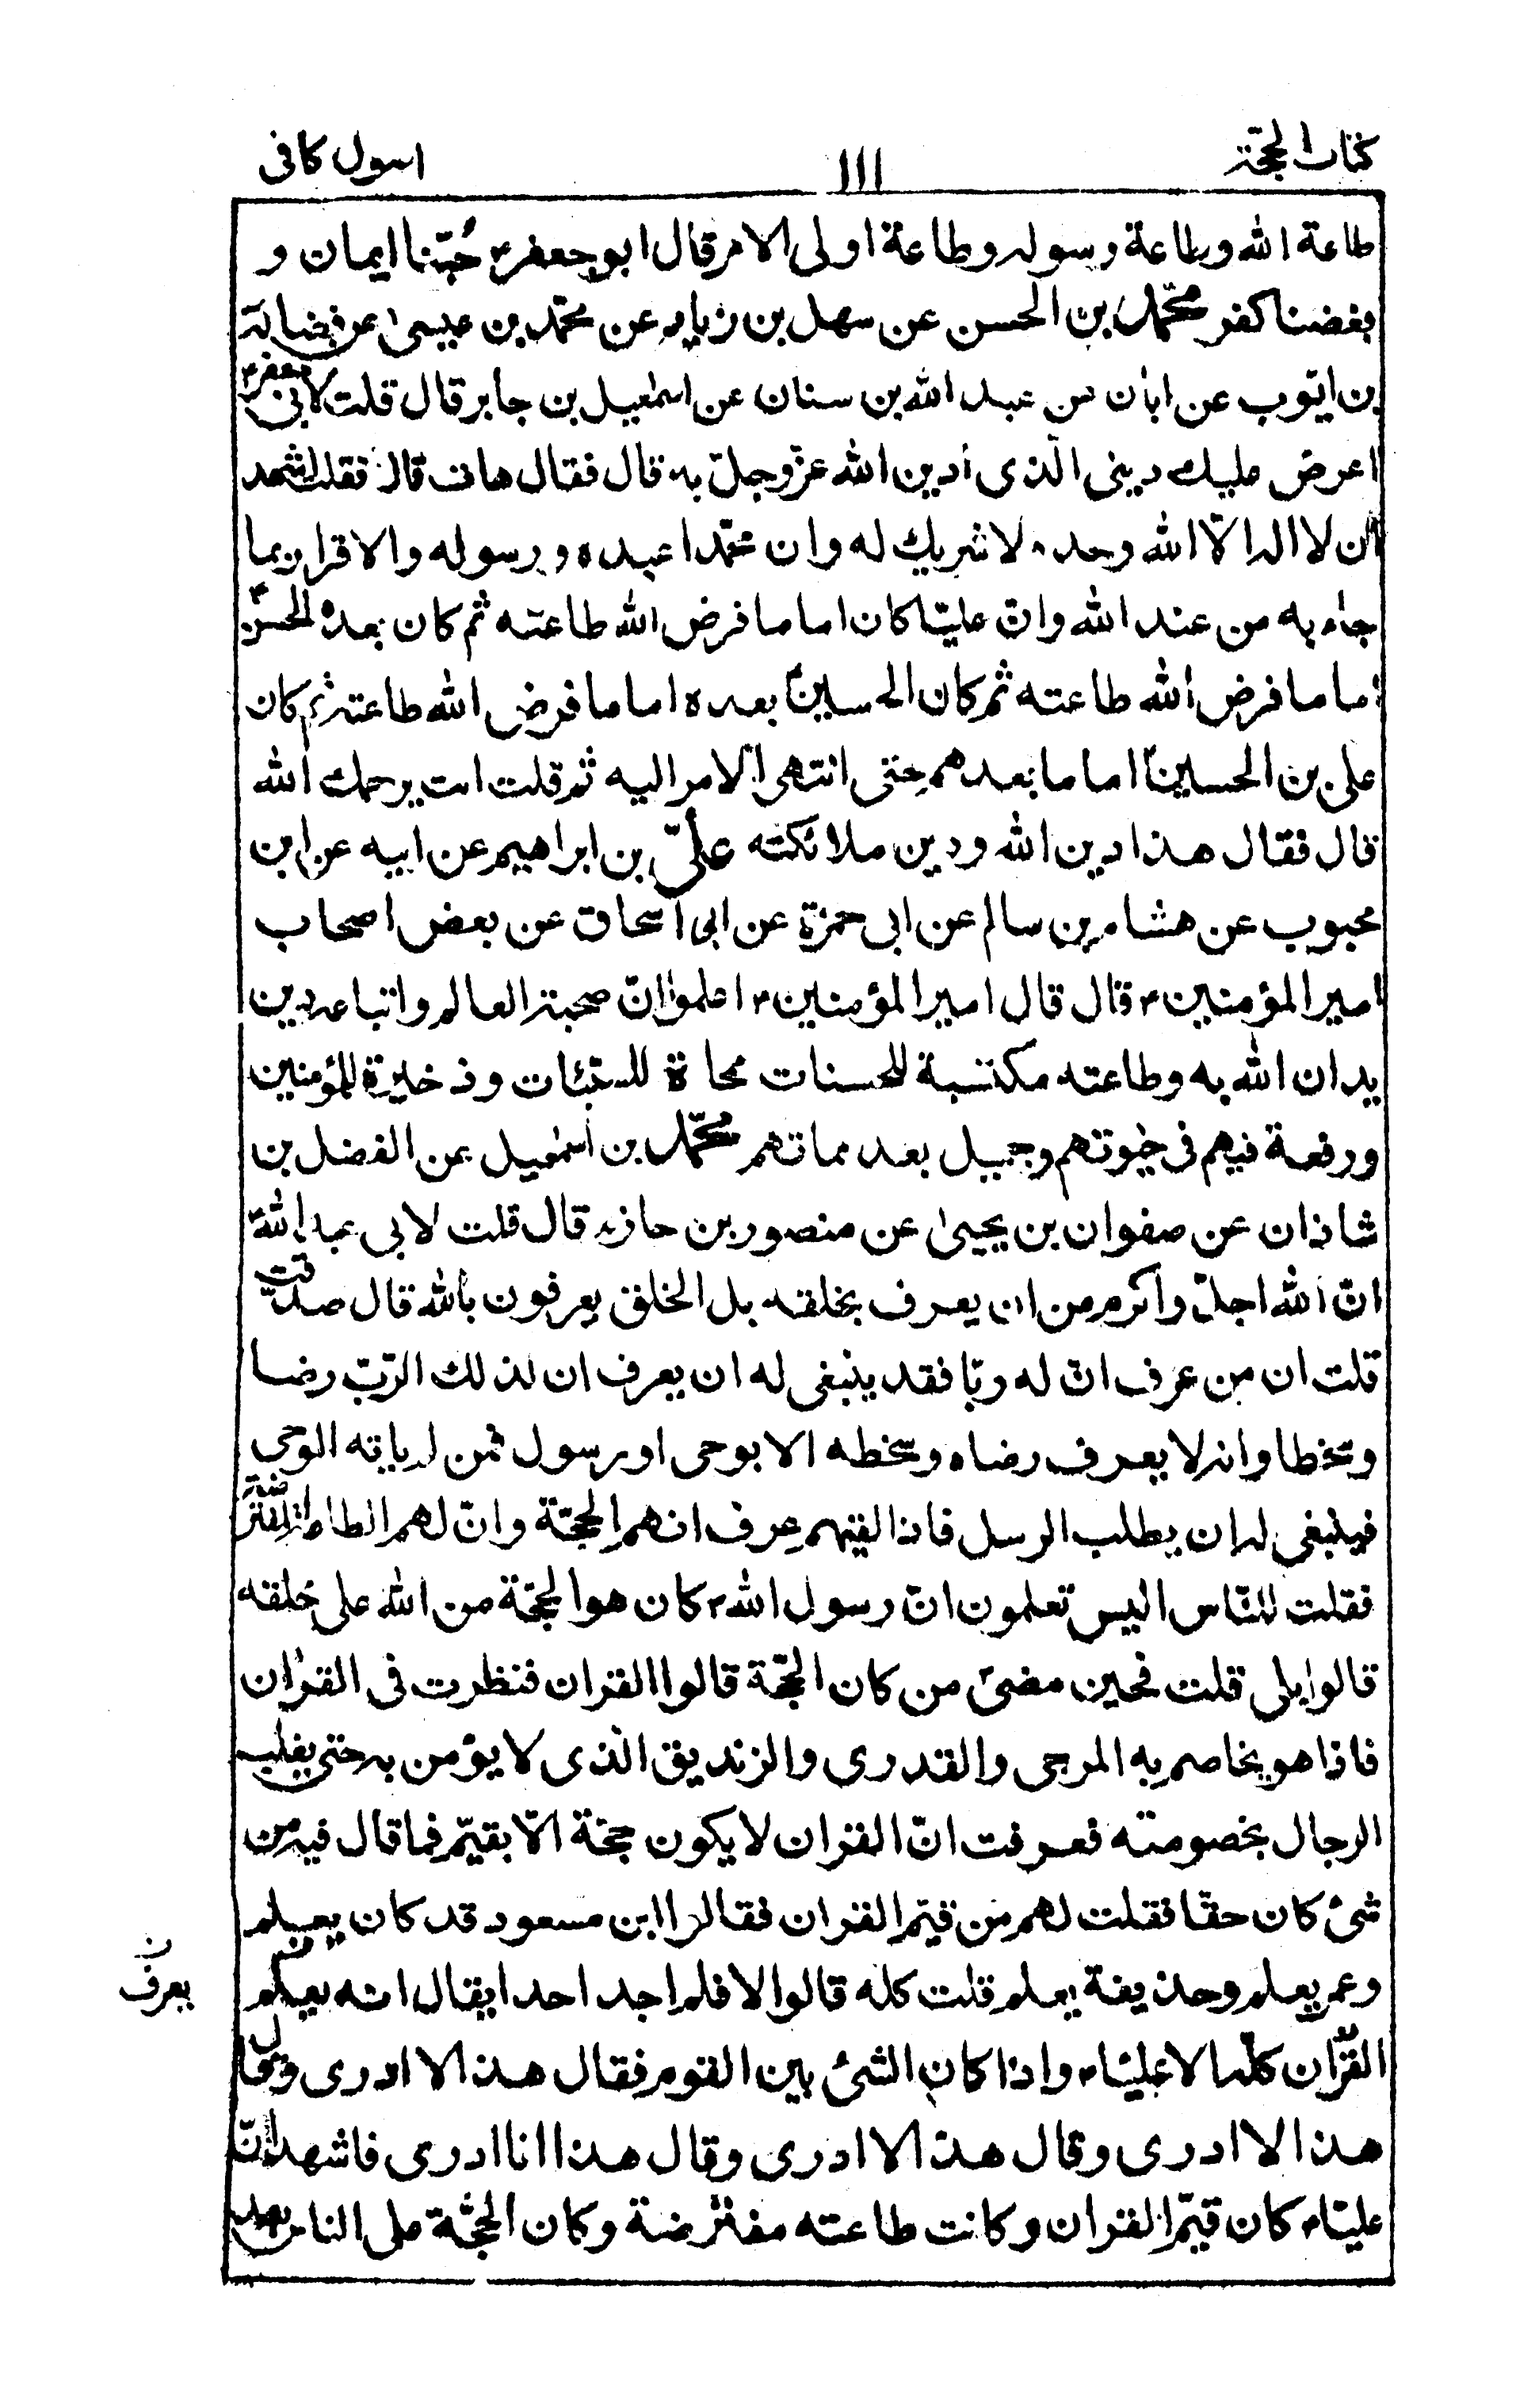 كتاب الحجة ١١١ اسول كافى
طاعة الله وطاعة رسوله وطاعة اولى الامر قال ابو جعفر؏ حُبّنا ايمان و
بغضنا كفر محمّد بن الحسن عن سهل بن زياد عن محمّد بن عيسىٰ عن فضالة
بن ايّوب عن ابان عن عبد الله بن سنان عن اسمٰعيل بن جابر قال قلت لابى جعفر؏
اعرض عليك دينى الّذى أدين الله عزّ وجلّ به قال فقال هات قال فقلت اشهد
أن لا اله الّا الله وحده لا شريك له وان محمّدا عبده ورسوله والاقرار بما
جاء به من عند الله وانّ عليّا كان اماما فرض الله طاعته ثم كان بعده الحسن؏
اماما فرض الله طاعته ثم كان الحسين؏ بعده اماما فرض الله طاعته ثم كان
على بن الحسين؏ اماما بعدهم حتى انتهى الامر اليه ثم قلت انت يرحمك الله
قال فقال هذا دين الله ودين ملائكته علىّ بن ابراهيم عن ابيه عن ابن
محبوب عن هشام بن سالم عن ابى حمزة عن ابى اسحاق عن بعض اصحاب
امير المؤمنين؏ قال قال امير المؤمنين؏ اعلموا انّ صحبة العالم واتباعه دين
يدان الله به وطاعته مكتسبة للحسنات محاة للسيّئات وذخيرة للمؤمنين
ورفعة فيهم فى حيٰوتهم وجميل بعد مماتهم محمّد بن اسمٰعيل عن الفضل بن
شاذان عن صفوان بن يحيىٰ عن منصور بن حازم قال قلت لابى عبد الله؏
انّ الله اجلّ واكرم من ان يعرف بخلقه بل الخلق يعرفون بالله قال صدقت
قلت ان من عرف انّ له ربّا فقد ينبغى له ان يعرف ان لذلك الربّ رضا
وسخطا وانه لا يعرف رضاه وسخطه الا بوحى او رسول فمن لم ياته الوحى
فينبغى له ان يطلب الرسل فاذا لقيهم عرف انهم الحجّة وانّ لهم الطاعة المفترضة
فقلت للنّاس اليس تعلمون انّ رسول الله؏ كان هو الحجّة من الله على خلقه
قالوا بلى قلت فحين مضى؏ من كان الحجّة قالوا القران فنظرت فى القرٰان
فاذا هو يخاصم به المرجى والقدرى والزنديق الّذى لا يؤمن به حتى يغلب
الرجال بخصومته فعرفت انّ القران لا يكون حجّة الّا بقيّم فما قال فيه من
شئ كان حقّا فقلت لهم من قيّم القران فقالوا ابن مسعود قد كان يعلم
وعمر يعلم وحذيفة يعلم قلت كله قالوا لا فلم اجد احدا يقال انه يعلم
يعرف ن
القرٰان كلّه الا عليّا؏ واذا كان الشئ بين القوم فقال هذا لا ادرى وقال
هذا لا ادرى وقال هذا لا ادرى وقال هذا انا ادرى فاشهد انّ
عليّا؏ كان قيّم القران وكانت طاعته مفترضة وكان الحجّة على الناس بعد